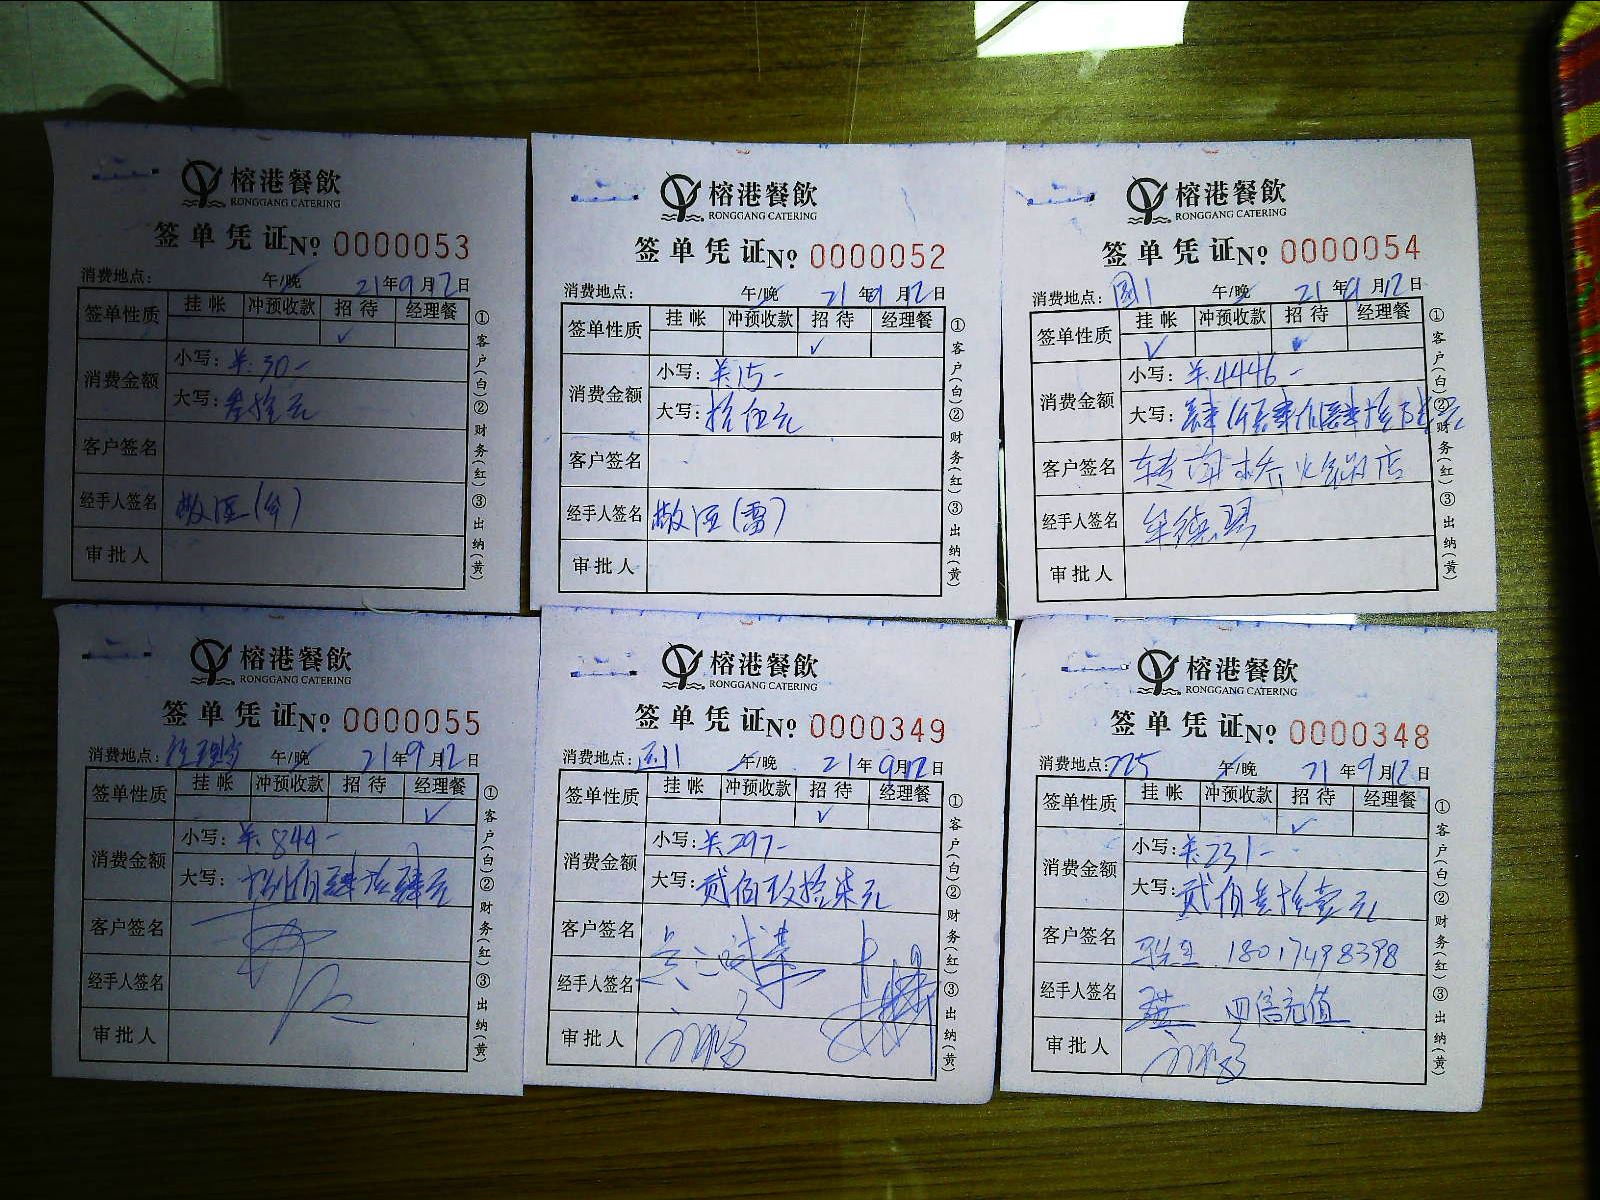 榕港餐飲
RONGGANG CATERING
签单凭证 No 0000053
消费地点: 午/晚 21年9月12日
签单性质 挂帐 冲预收款 招待 经理餐
✓
消费金额
小写: 羊:30-
大写: 叁拾元
客户签名
经手人签名 散酒
审批人
①客户(白)②财务(红)③出纳(黄)
榕港餐飲
RONGGANG CATERING
签单凭证 No 0000052
消费地点: 午/晚 21年9月12日
签单性质 挂帐 冲预收款 招待 经理餐
✓
消费金额
小写: 羊:15-
大写: 拾伍元
客户签名
经手人签名 散酒(雷)
审批人
①客户(白)②财务(红)③出纳(黄)
榕港餐飲
RONGGANG CATERING
签单凭证 No 0000054
消费地点: 午/晚 21年9月12日
签单性质 挂帐 冲预收款 招待 经理餐
✓
消费金额
小写: 羊:4446-
大写: 肆仟肆佰肆拾陆元
客户签名 转南桥火锅店
经手人签名
审批人
①客户(白)②财务(红)③出纳(黄)
榕港餐飲
RONGGANG CATERING
签单凭证 No 0000055
消费地点: 午/晚 21年9月12日
签单性质 挂帐 冲预收款 招待 经理餐
✓
消费金额
小写: 羊:844-
大写: 捌佰肆拾肆元
客户签名
经手人签名
审批人
①客户(白)②财务(红)③出纳(黄)
榕港餐飲
RONGGANG CATERING
签单凭证 No 0000349
消费地点: 午/晚 21年9月12日
签单性质 挂帐 冲预收款 招待 经理餐
✓
消费金额
小写: 羊:297-
大写: 贰佰玖拾柒元
客户签名
经手人签名
审批人
①客户(白)②财务(红)③出纳(黄)
榕港餐飲
RONGGANG CATERING
签单凭证 No 0000348
消费地点: 725 午/晚 21年9月12日
签单性质 挂帐 冲预收款 招待 经理餐
✓
消费金额
小写: 羊:231-
大写: 贰佰叁拾壹元
客户签名 18017498398
经手人签名 四倍充值
审批人
①客户(白)②财务(红)③出纳(黄)